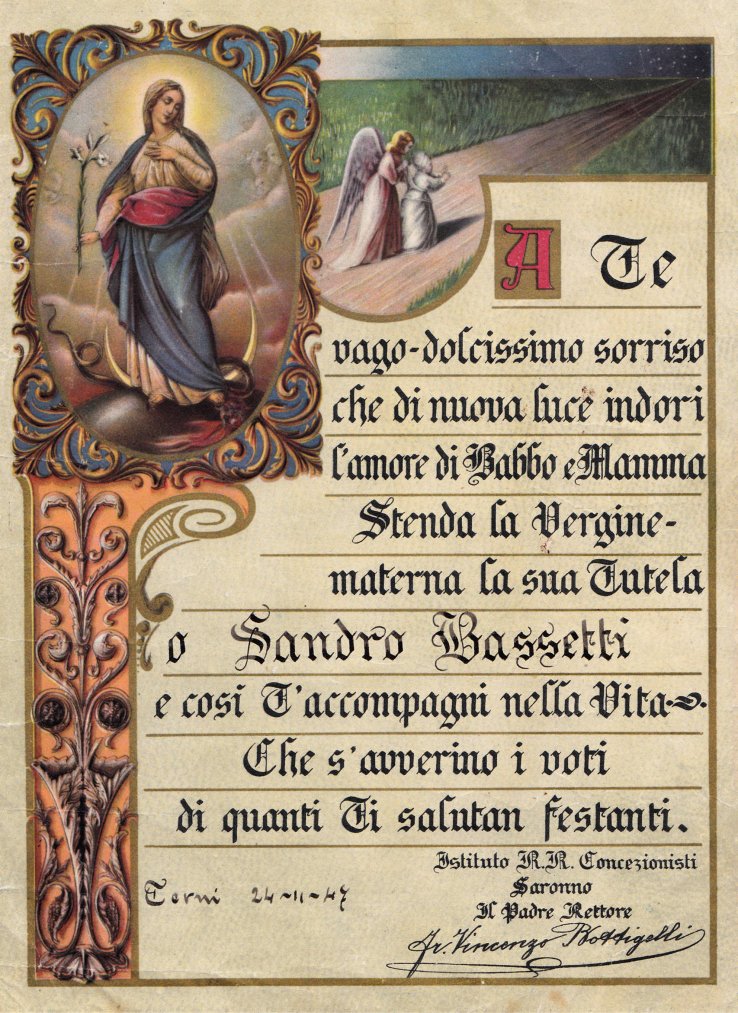 A Te
vago-dolcissimo sorriso
che di nuova luce indori
l'amore di Babbo e Mamma
Stenda la Vergine-
materna la sua Tutela
o Sandro Bassetti
e così T'accompagni nella Vita
Che s'avverino i voti
di quanti Ti salutan festanti.
Istituto R.R. Concezionisti
Saronno
Il Padre Rettore
Fr. Vincenzo Bottigelli
Terni 24-11-47